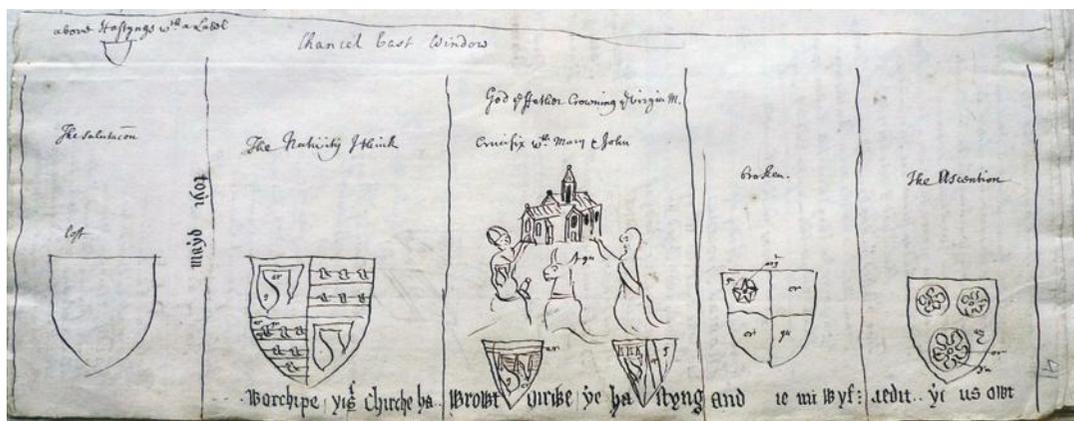 above Hastyngs wth a Label
Chancel East Window
The Salutacon
lost
mayd
The Nativity I think
or
God ye ffather Crowning ye Virgin M.
Crucifix wth Mary & John
broken.
arg
or
or
gu
The Ascention
or
worchipe yis Chirche ha wrowt ye ha styng and ie mi wyf: yt us owt